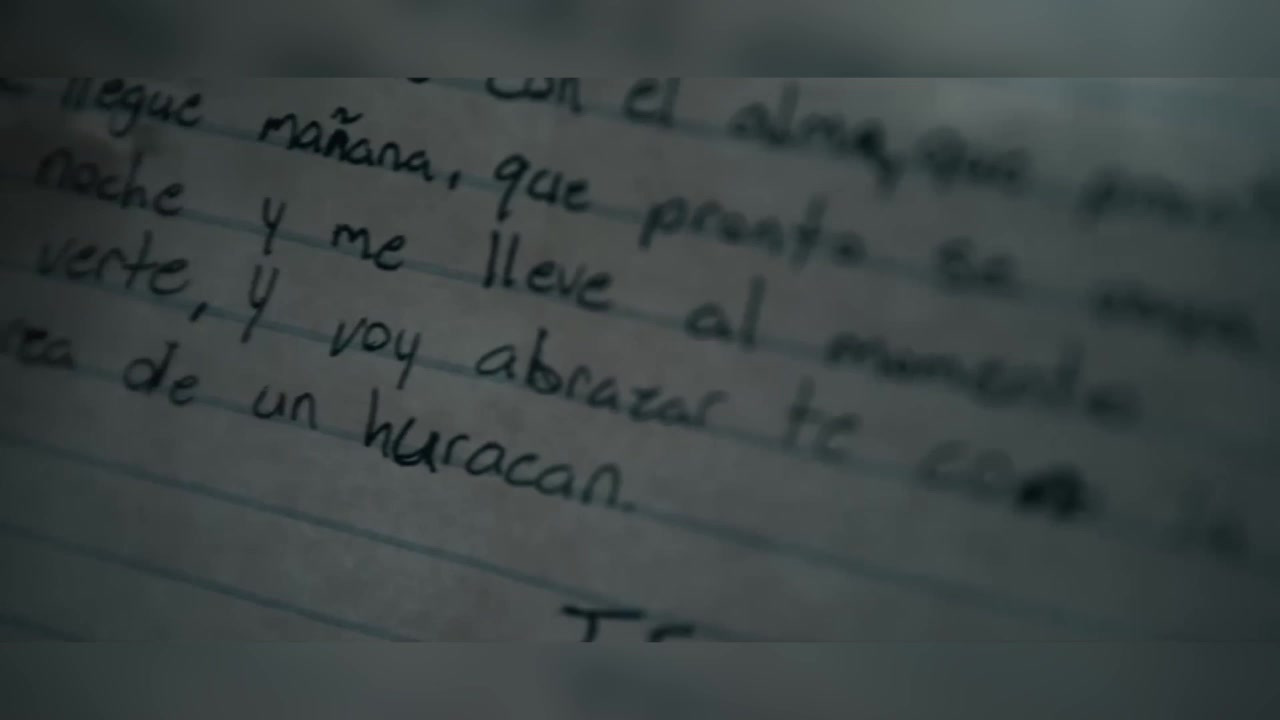 con el alma, que
llegue mañana, que pronto se
noche y me lleve al momento
verte, y voy abrazar te con la
rza de un huracan.
Te